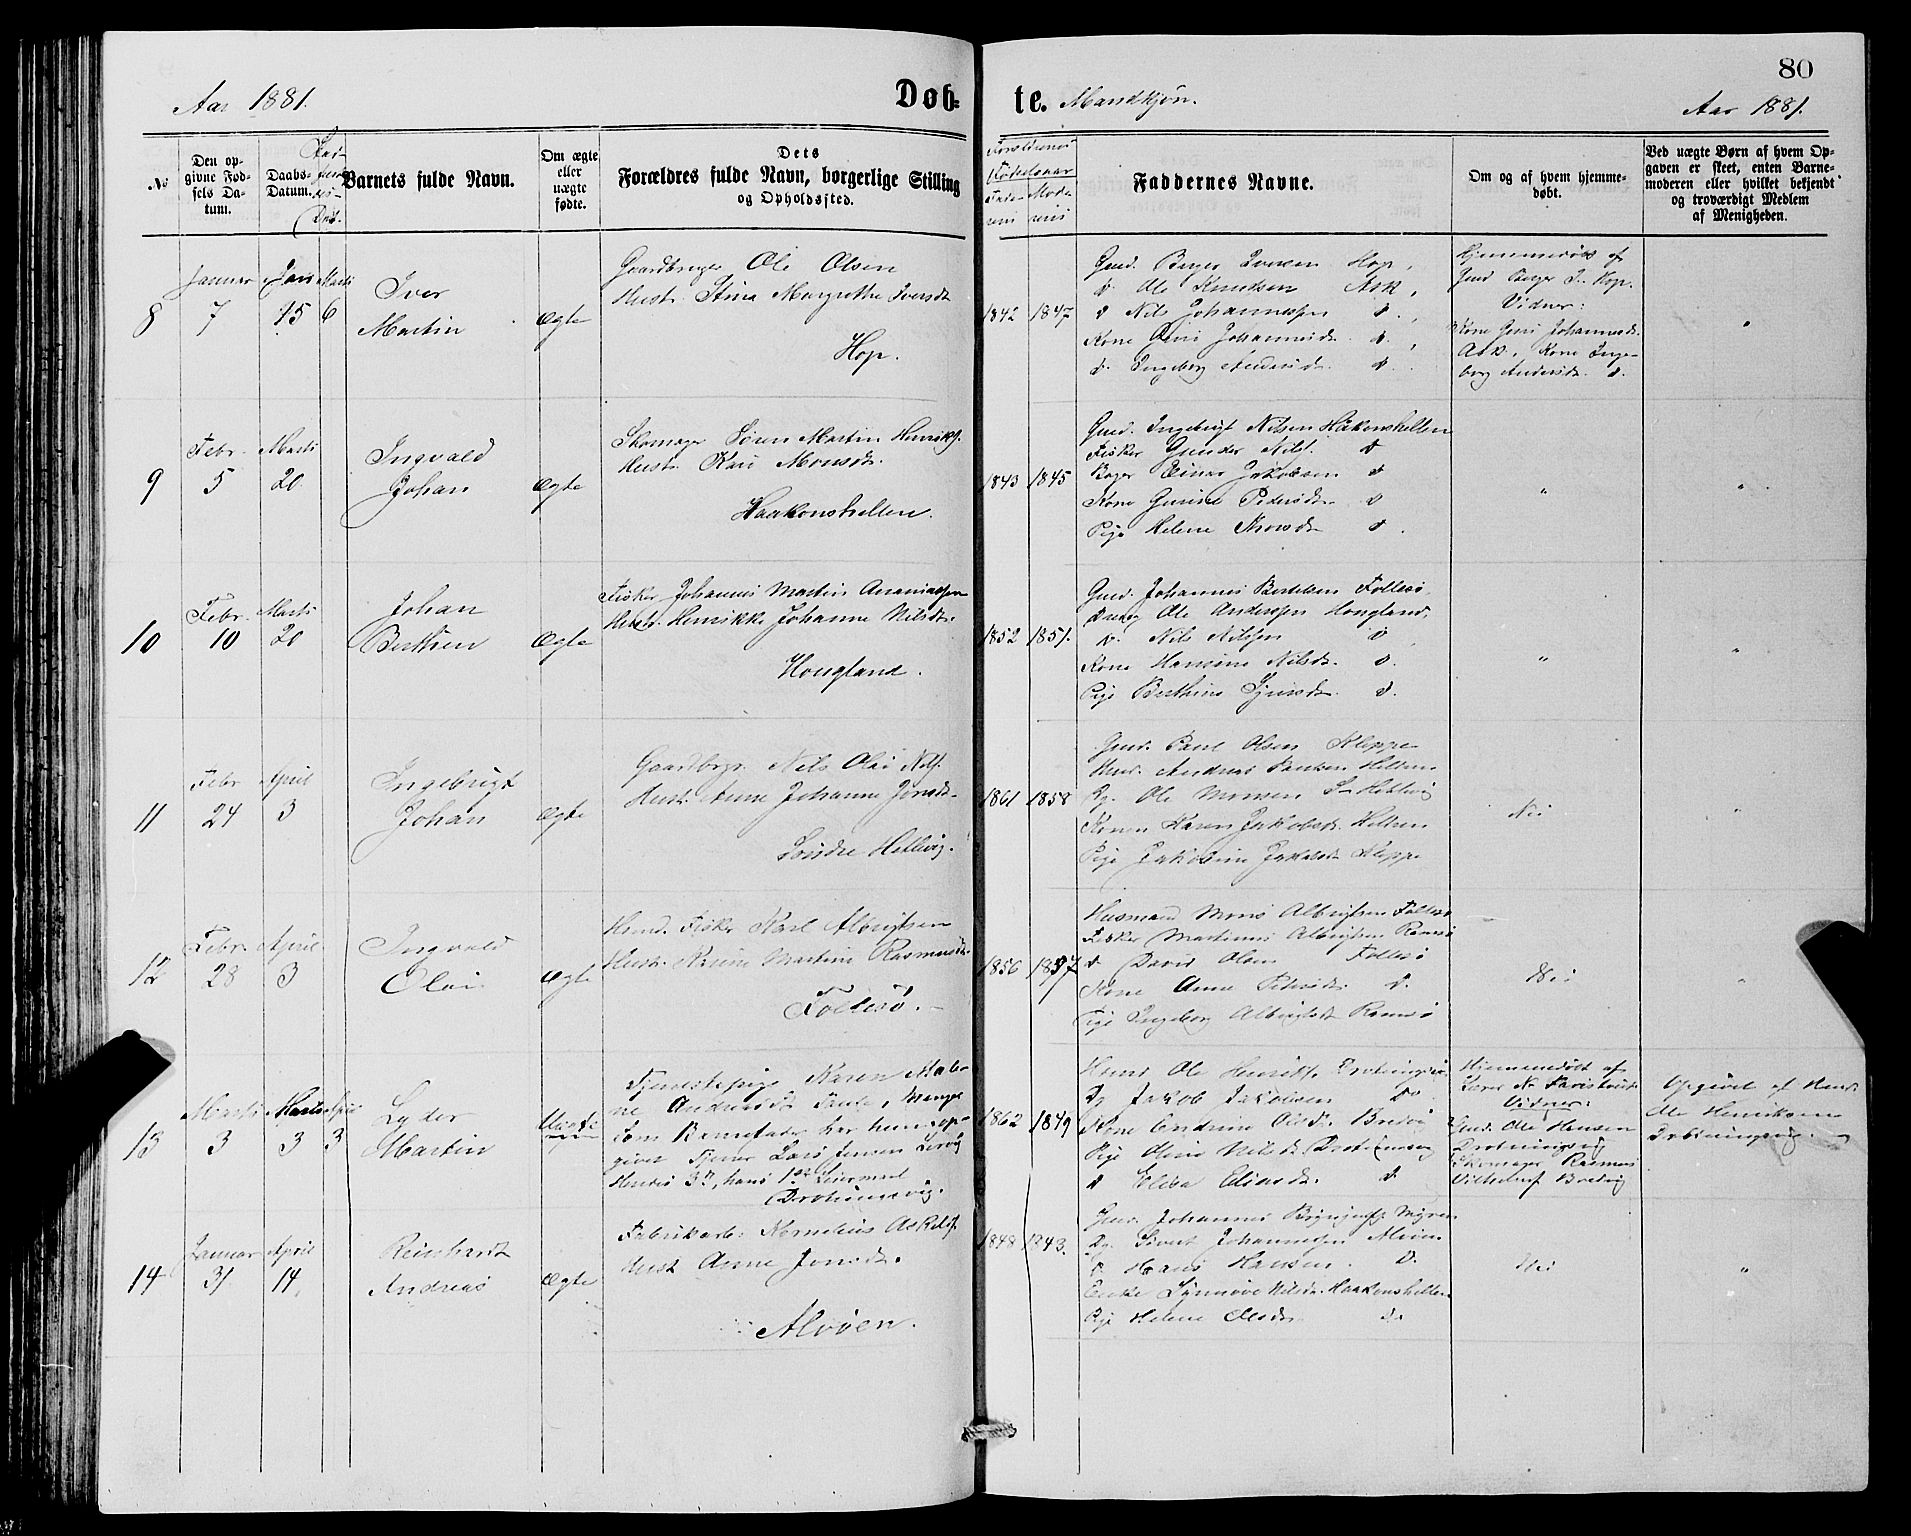 80
Aar 1881.
Døb-
te. Mandkjøn.
Aar 1881.
No
Den op-
givne Fød-
sels Da-
tum.
Daabs-
Datum.
Barnets fulde Navn.
Om ægte
eller
uægte
fødte.
Dets
Forældres fulde Navn, borgerlige Stilling
og Opholdssted.
Forældrenes
Fødselsaar
Fade- Mode-
rens rens
Faddernes Navne.
Om og af hvem hjemme-
døbt.
Ved uægte Børn af hvem Op-
gaven er skeet, enten Barne-
moderen eller hvilket bekjendt
og troværdigt Medlem
af Menigheden.
8
Januar
7
15
Marts
6
Iver
Martin
Ægte
Gaardbruger Ole Olsen
Hust. Stina Margrethe Iversdt.
Hop.
1842 1847
Gmd. Berger Iversen Hop,
d. Ole Knudsen Ask,
d Nils Johannessen d.
Kone Guri Johannesdt. d.
d. Ingeborg Andersdt. d.
Hjemmedøbt af
Gmd Berger I. Hop.
Vidner:
Kone Guri Johannesdt.
Ask, Kone Inge-
borg Andersdt. d.
"
9
Febr.
5
Marts
20
Ingvald
Johan
Ægte
Skomager Søren Martin Henriks.
Hust. Kari Monsdt.
Haakonshellen.
1843 1845
Gmd. Ingebrigt Nilsen Håkonshellen
Fisker Gunder Nils. d
Einar Jakobsen d
Kone Gurine Pedersdt. d
Pige Helene d.
"
"
10
Febr.
10
Marts
20
Johan
Berthin
Ægte
Fisker Johannes Martin Ananiassen
Hust. Henrikke Johanne Nilsdt.
Hougland.
1852 1851.
Gmd. Johannes Bertelsen Follesø,
Dreng Ole Andersen Hougland,
d. Nils Nilsen d
Kone Hansine Nilsdt. d.
Pige Berthine d.
"
"
11
Febr.
24
April
3
Ingebrigt
Johan
Ægte
Gaardbrgr. Nils Olai Nils.
Hust. Anne Johanne Jonsdt.
Søndre Hetlevig.
1861 1858
Gmd. Paul Olsen Kleppe
Andreas Paulsen
Ole Monsen S. Hetlevig
Karen Jakobsdt.
Pige Jakobine Jakobsdt. Kleppe
Nei
"
12
Febr.
28
April
3
Ingvald
Olai
Ægte
Hmd. Fisker Karl Albrigtsen
Hust. Martine Rasmusdt.
Follesø.
1856 1857
Husmand Mons Albrigtsen Follesø
Fisker Martinus Albrigtsen Ramsø
d David Olsen Follesø
Kone Anne Pedersdt. d.
Pige Ingeborg Albrigtsdt Ramsø
Nei
"
13
Marts
3
Marts
3
April
3
Lyder
Martin
Uægte
Tjenestepige Karen Male-
ne Andersdt.
Som Barnefader har hun op-
givet Lars Jensen
Hendes 3die, hans 1ste Leiermaal
Drotningsvig.
1862 1849
Hmd Ole Henriks. Drotningsvig
Dg Jakob Jakobsen Do
Kone Andrine Olsdt. Bredvig
Pige Oline Nilsdt. Drotningsvig
d Elisa Eliasdt. d
Hjemmedøbt af
Vidner:
Gmd. Ole Hansen
Drotningsvig
Skomager Rasmus
Vilhelms. Bredvig
Opgivet af Hmd.
Ole Henriksen
Drotningsvig.
14
Januar
31
April
14.
Reinhardt
Andreas
Ægte
Fabrikarb. Kornelius Askels.
Hust Anne Jonsdt.
Alvøen.
1848 1843.
Gmd. Johannes Myren
Dg. Sivert Johannesen Alvøen
d. Hans Hansen. D.
Enke Synnøve Nilsdt. Haakonshellen
Pige Helene Olsdt. d.
Nei
"